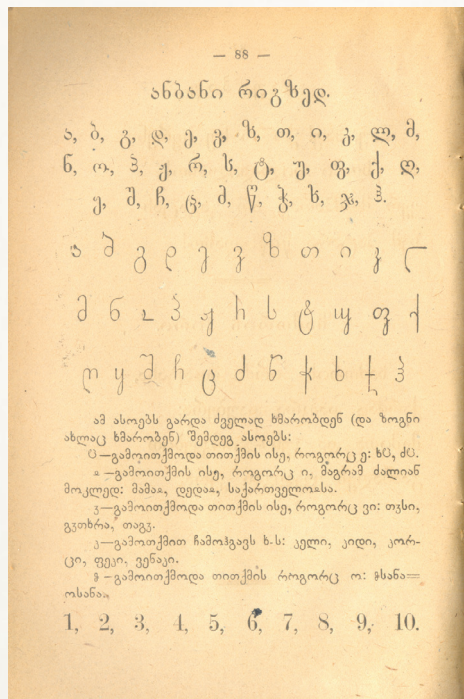 — 88 —
ანბანი რიგზედ.
ა, ბ, გ, დ, ე, ვ, ზ, თ, ი, კ, ლ, მ,
ნ, ო, პ, ჟ, რ, ს, ტ, უ, ფ, ქ, ღ,
ყ, შ, ჩ, ც, ძ, წ, ჭ, ხ, ჯ, ჰ.
ა ბ გ დ ე ვ ზ თ ი კ ლ
მ ნ ო პ ჟ რ ს ტ უ ფ ქ
ღ ყ შ ჩ ც ძ წ ჭ ხ ჯ ჰ
ამ ასოებს გარდა ძველად ხმარობდენ (და ზოგნი
ახლაც ხმარობენ) შემდეგ ასოებს:
ჱ—გამოითქმოდა თითქმის ისე, როგორც ე: ხჱ, ძჱ.
ჲ—გამოითქმის ისე, როგორც ი, მაგრამ ძალიან
მოკლედ: მამაჲ, დედაჲ, საქართველოჲსა.
ჳ—გამოითქმოდა თითქმის ისე, როგორც ვი: თჳსი,
გჳთხრა, თაგჳ.
ჴ—გამოთქმით ჩამოჰგავს ხ-ს: ჴელი, ჴიდი, ჴორ-
ცი, ფეჴი, ვენაჴი.
ჵ—გამოითქმოდა თითქმის როგორც ო: ჵსანა=
ოსანა.
1, 2, 3, 4, 5, 6, 7, 8, 9, 10.